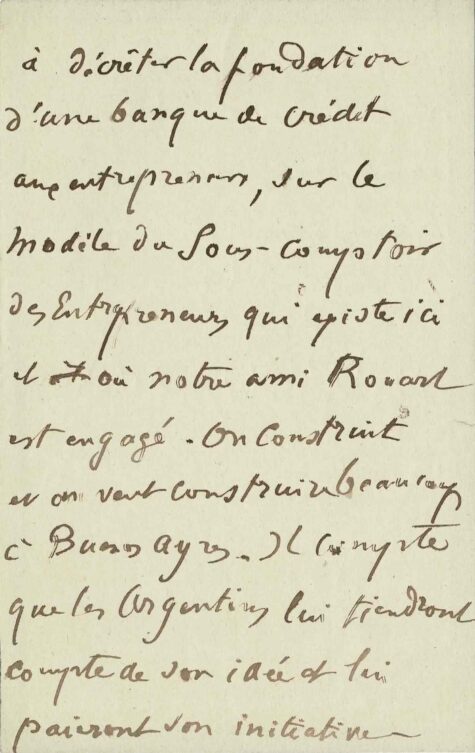 à décréter la fondation
d'une banque de crédit
aux entrepreneurs, sur le
modèle du Sous-comptoir
des Entrepreneurs qui existe ici
et où notre ami Rouart
est engagé. On construit
et on veut construire beaucoup
à Buenos Ayres. Il compte
que les Argentins lui tiendront
compte de son idée et lui
paieront son initiative